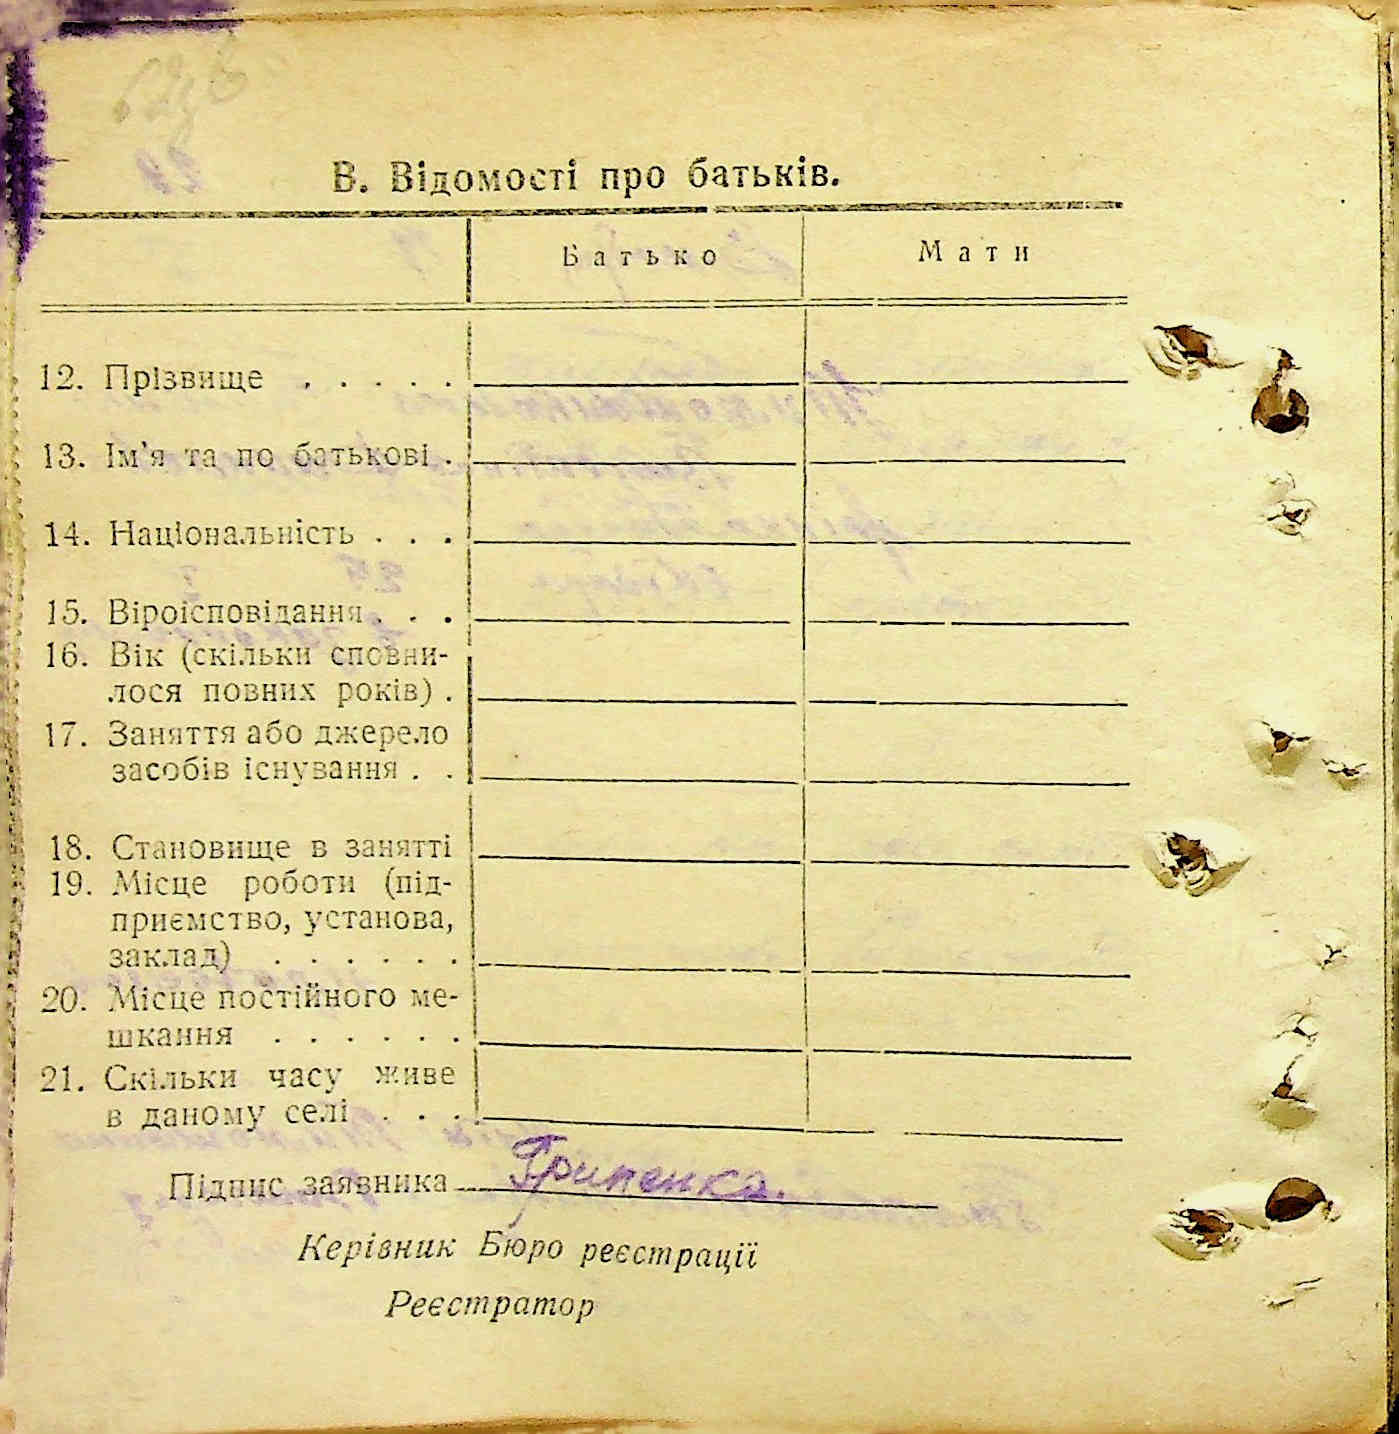 В. Відомості про батьків.
Батько Мати
12. Прізвище . . . . .
13. Ім'я та по батькові .
14. Національність . . .
15. Віроісповідання . . .
16. Вік (скільки сповни-
лося повних років) .
17. Заняття або джерело
засобів існування . .
18. Становище в занятті
19. Місце роботи (під-
приємство, установа,
заклад) . . . . . .
20. Місце постійного ме-
шкання . . . . . .
21. Скільки часу живе
в даному селі . . .
Підпис заявника Грипенко.
Керівник Бюро реєстрації
Реєстратор